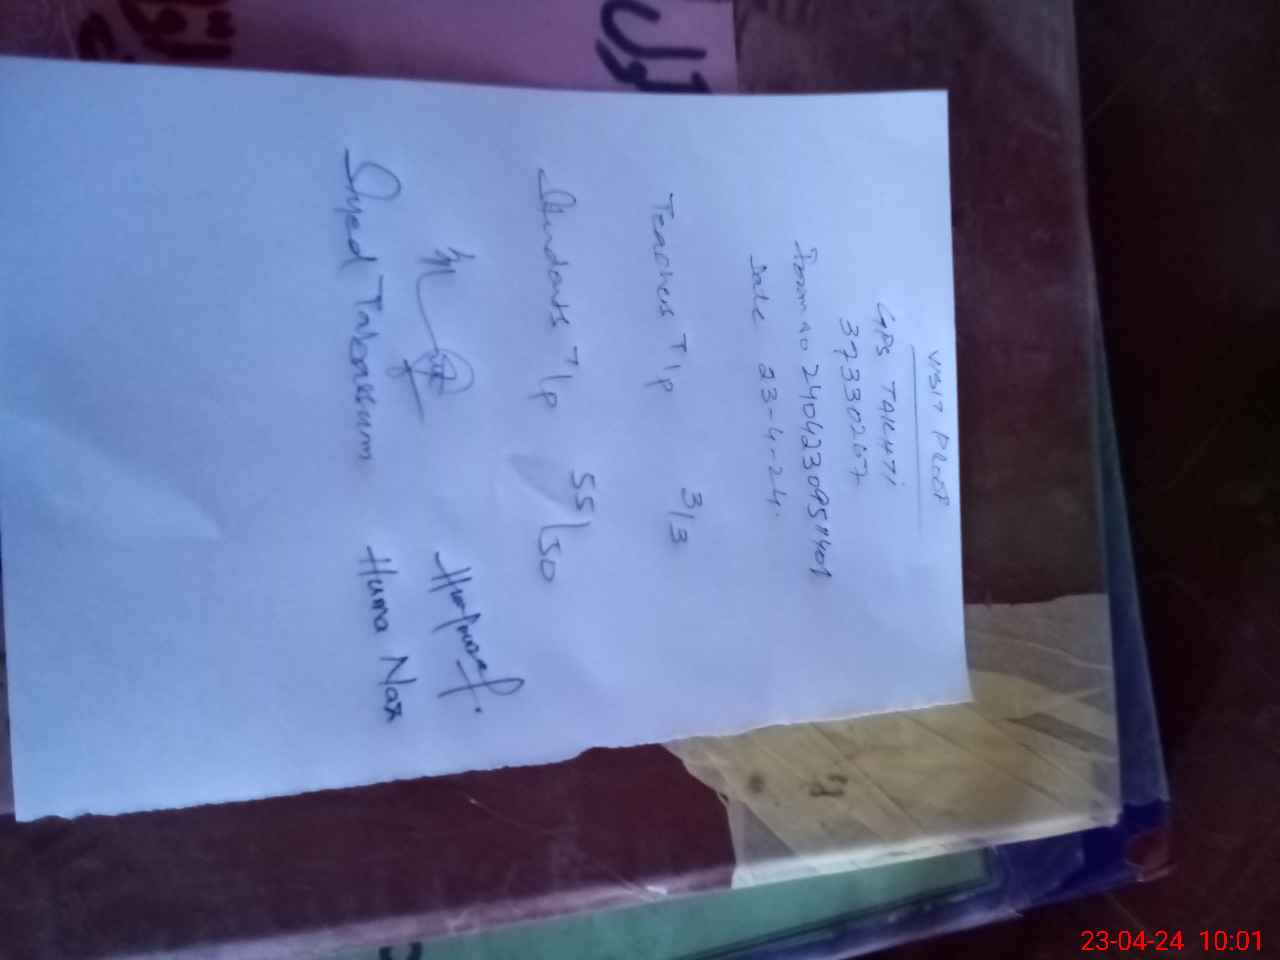 VISIT PROOF
GPS TAKHTI
37330267
Date 23-4-24.
Teachers T/p 3/3
Students T/p 55/50
Syed Tabassum Huma Naz
23-04-24 10:01